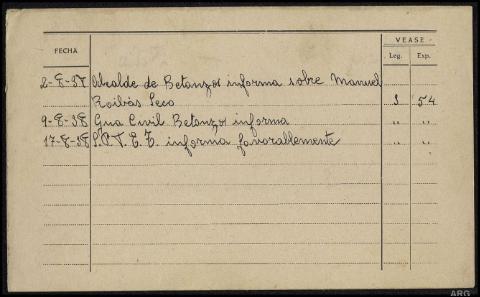 FECHA
VEASE
Leg. Exp.
2-8-37 Alcalde de Betanzos informa sobre Manuel
Roibás Seco 3 54
9-8-38 Gua Civil Betanzos informa " "
17-8-38 informa favorablemente " "
ARG